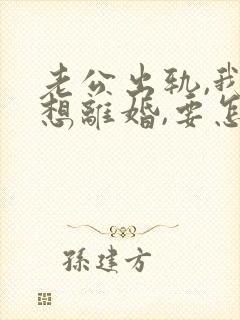 老公出轨,我
想離婚,要怎
孫建方